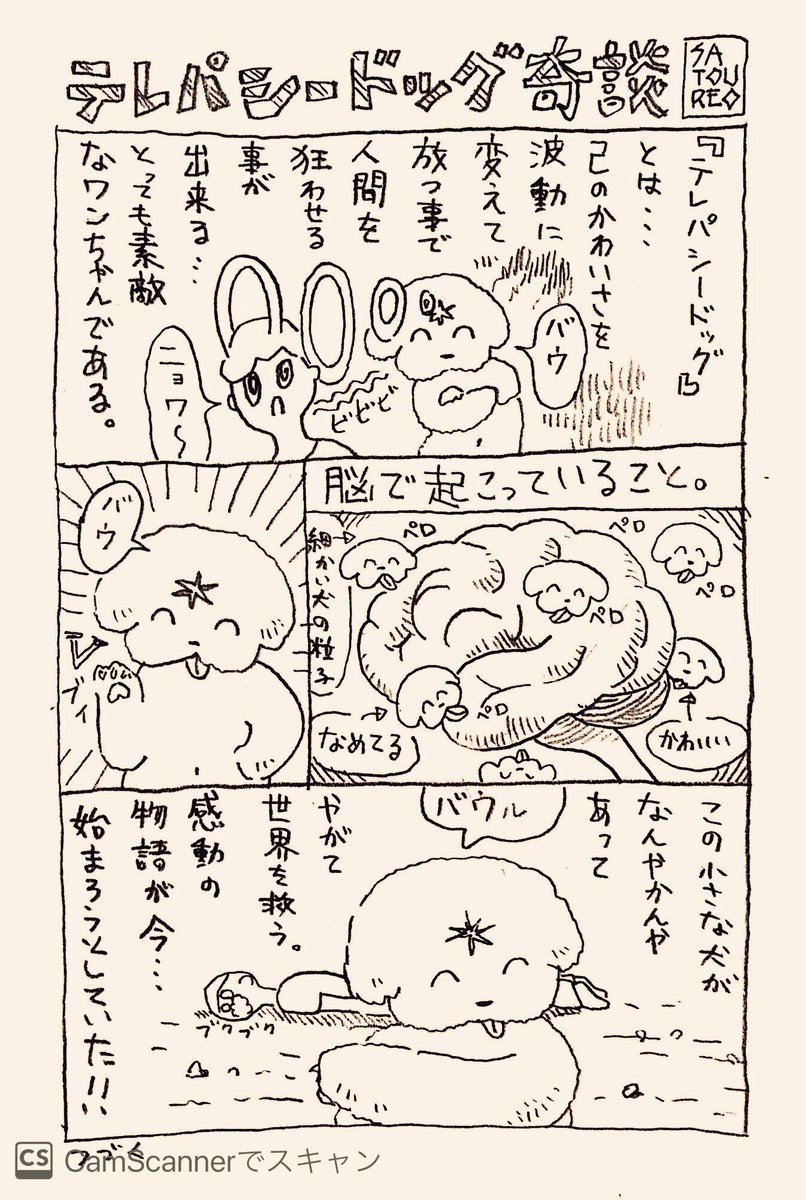 テレパシードッグ奇談
SA
TOU
REO
『テレパシードッグ』
とは…
己のかわいさを
波動に
変えて
放つ事で
人間を
狂わせる
事が
出来る…
とっても素敵
なワンちゃんである。
バウ
ビビビ
ニョワ〜
脳で起こっていること。
ペロ
ペロ
ペロ
ペロ
ペロ
細かい犬の粒子
かわいい
なめてる
バウ
ブイ
この小さな犬が
なんやかんや
あって
バウル
やがて
世界を救う。
感動の
物語が今…
始まろうとしていた!!
ブクブク
つづく
CS CamScannerでスキャン